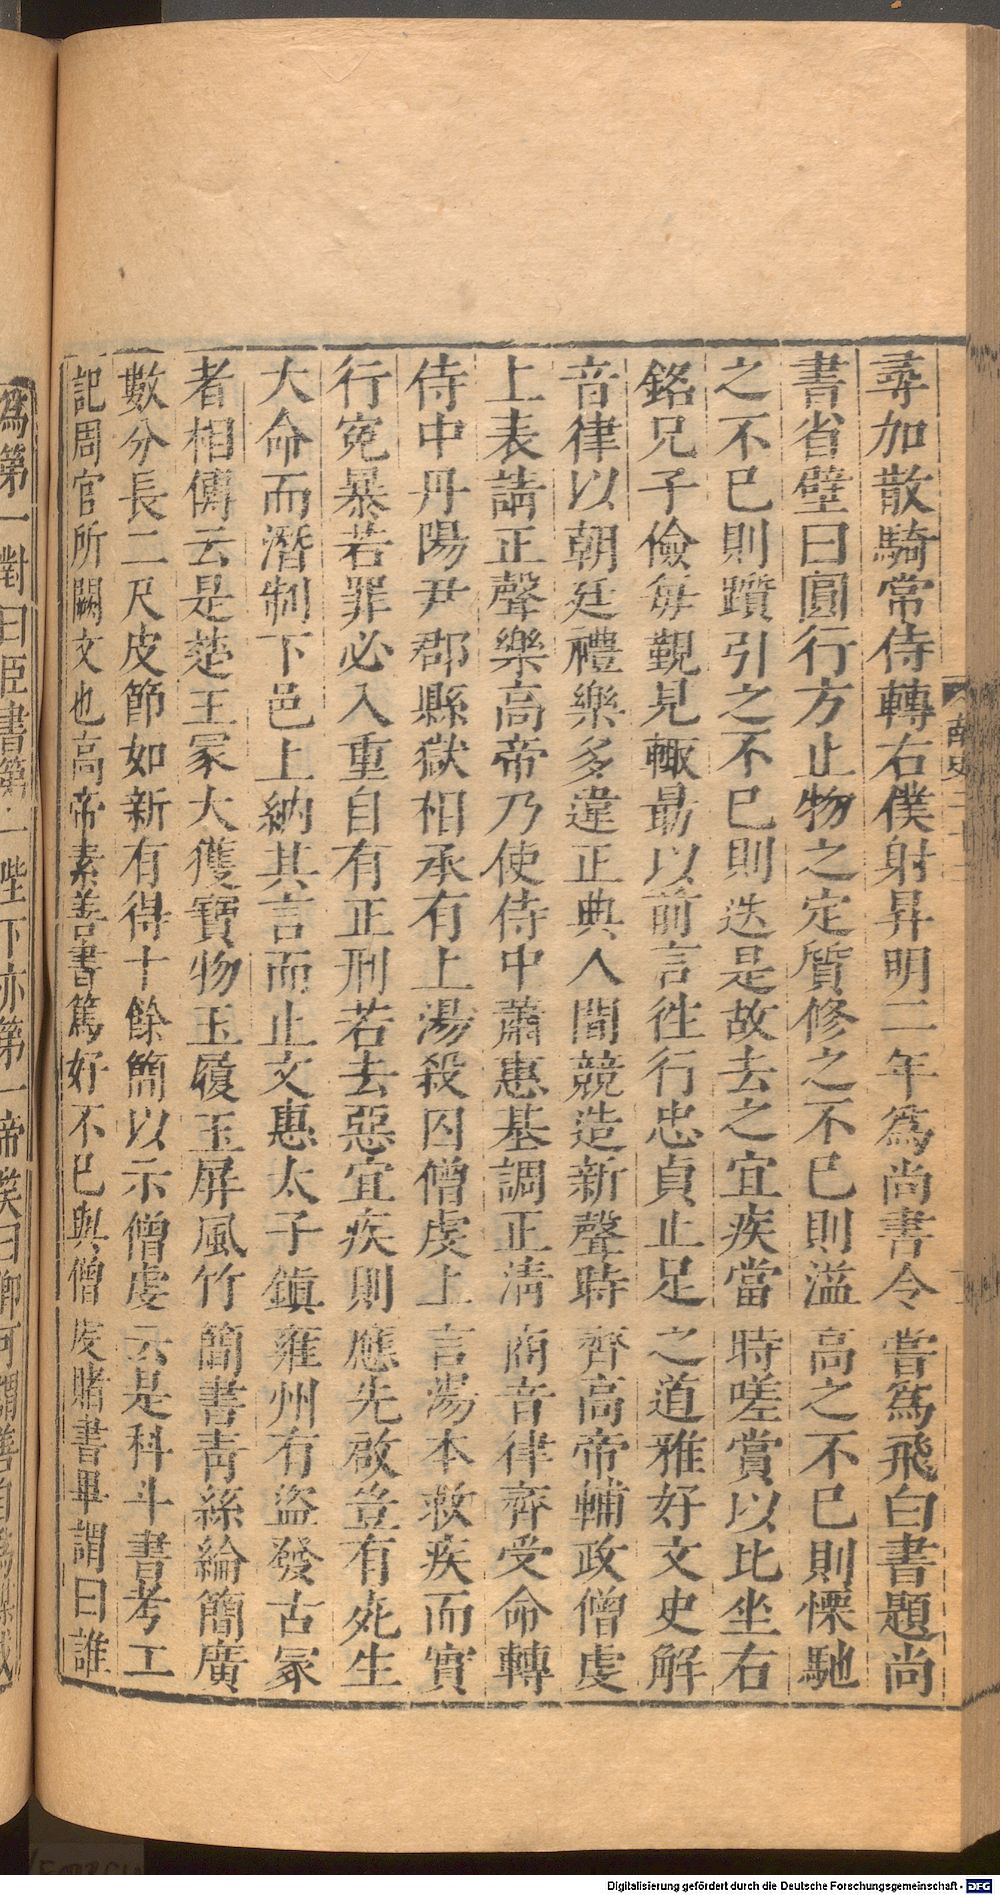 尋加散騎常侍轉右僕射昇明二年爲尚書令嘗爲飛白書題尚
書省壁曰圓行方止物之定質修之不已則溢高之不已則慄馳
之不已則躓引之不已則迭是故去之宜疾當時嗟賞以比坐右
銘兄子儉每覲見輙勗以前言徃行忠貞止足之道雅好文史解
音律以朝廷禮樂多違正典人間競造新聲時齊高帝輔政僧虔
上表請正聲樂高帝乃使侍中蕭惠基調正清商音律齊受命轉
侍中丹陽尹郡縣獄相承有上湯殺囚僧虔上言湯本救疾而實
行冤暴若罪必入重自有正刑若去惡宜疾則應先啟豈有死生
大命而潛制下邑上納其言而止文惠太子鎮雍州有盜發古冢
者相傳云是楚王冢大獲寶物玉履玉屏風竹簡書青絲綸簡廣
數分長二尺皮節如新有得十餘簡以示僧虔云是科斗書考工
記周官所闕文也高帝素善書篤好不已與僧虔賭書畢謂曰誰
爲第一對曰臣書第一陛下亦第一帝笑曰卿可謂善自爲謀
南史二十二
Digitalisierung gefördert durch die Deutsche Forschungsgemeinschaft - DFG